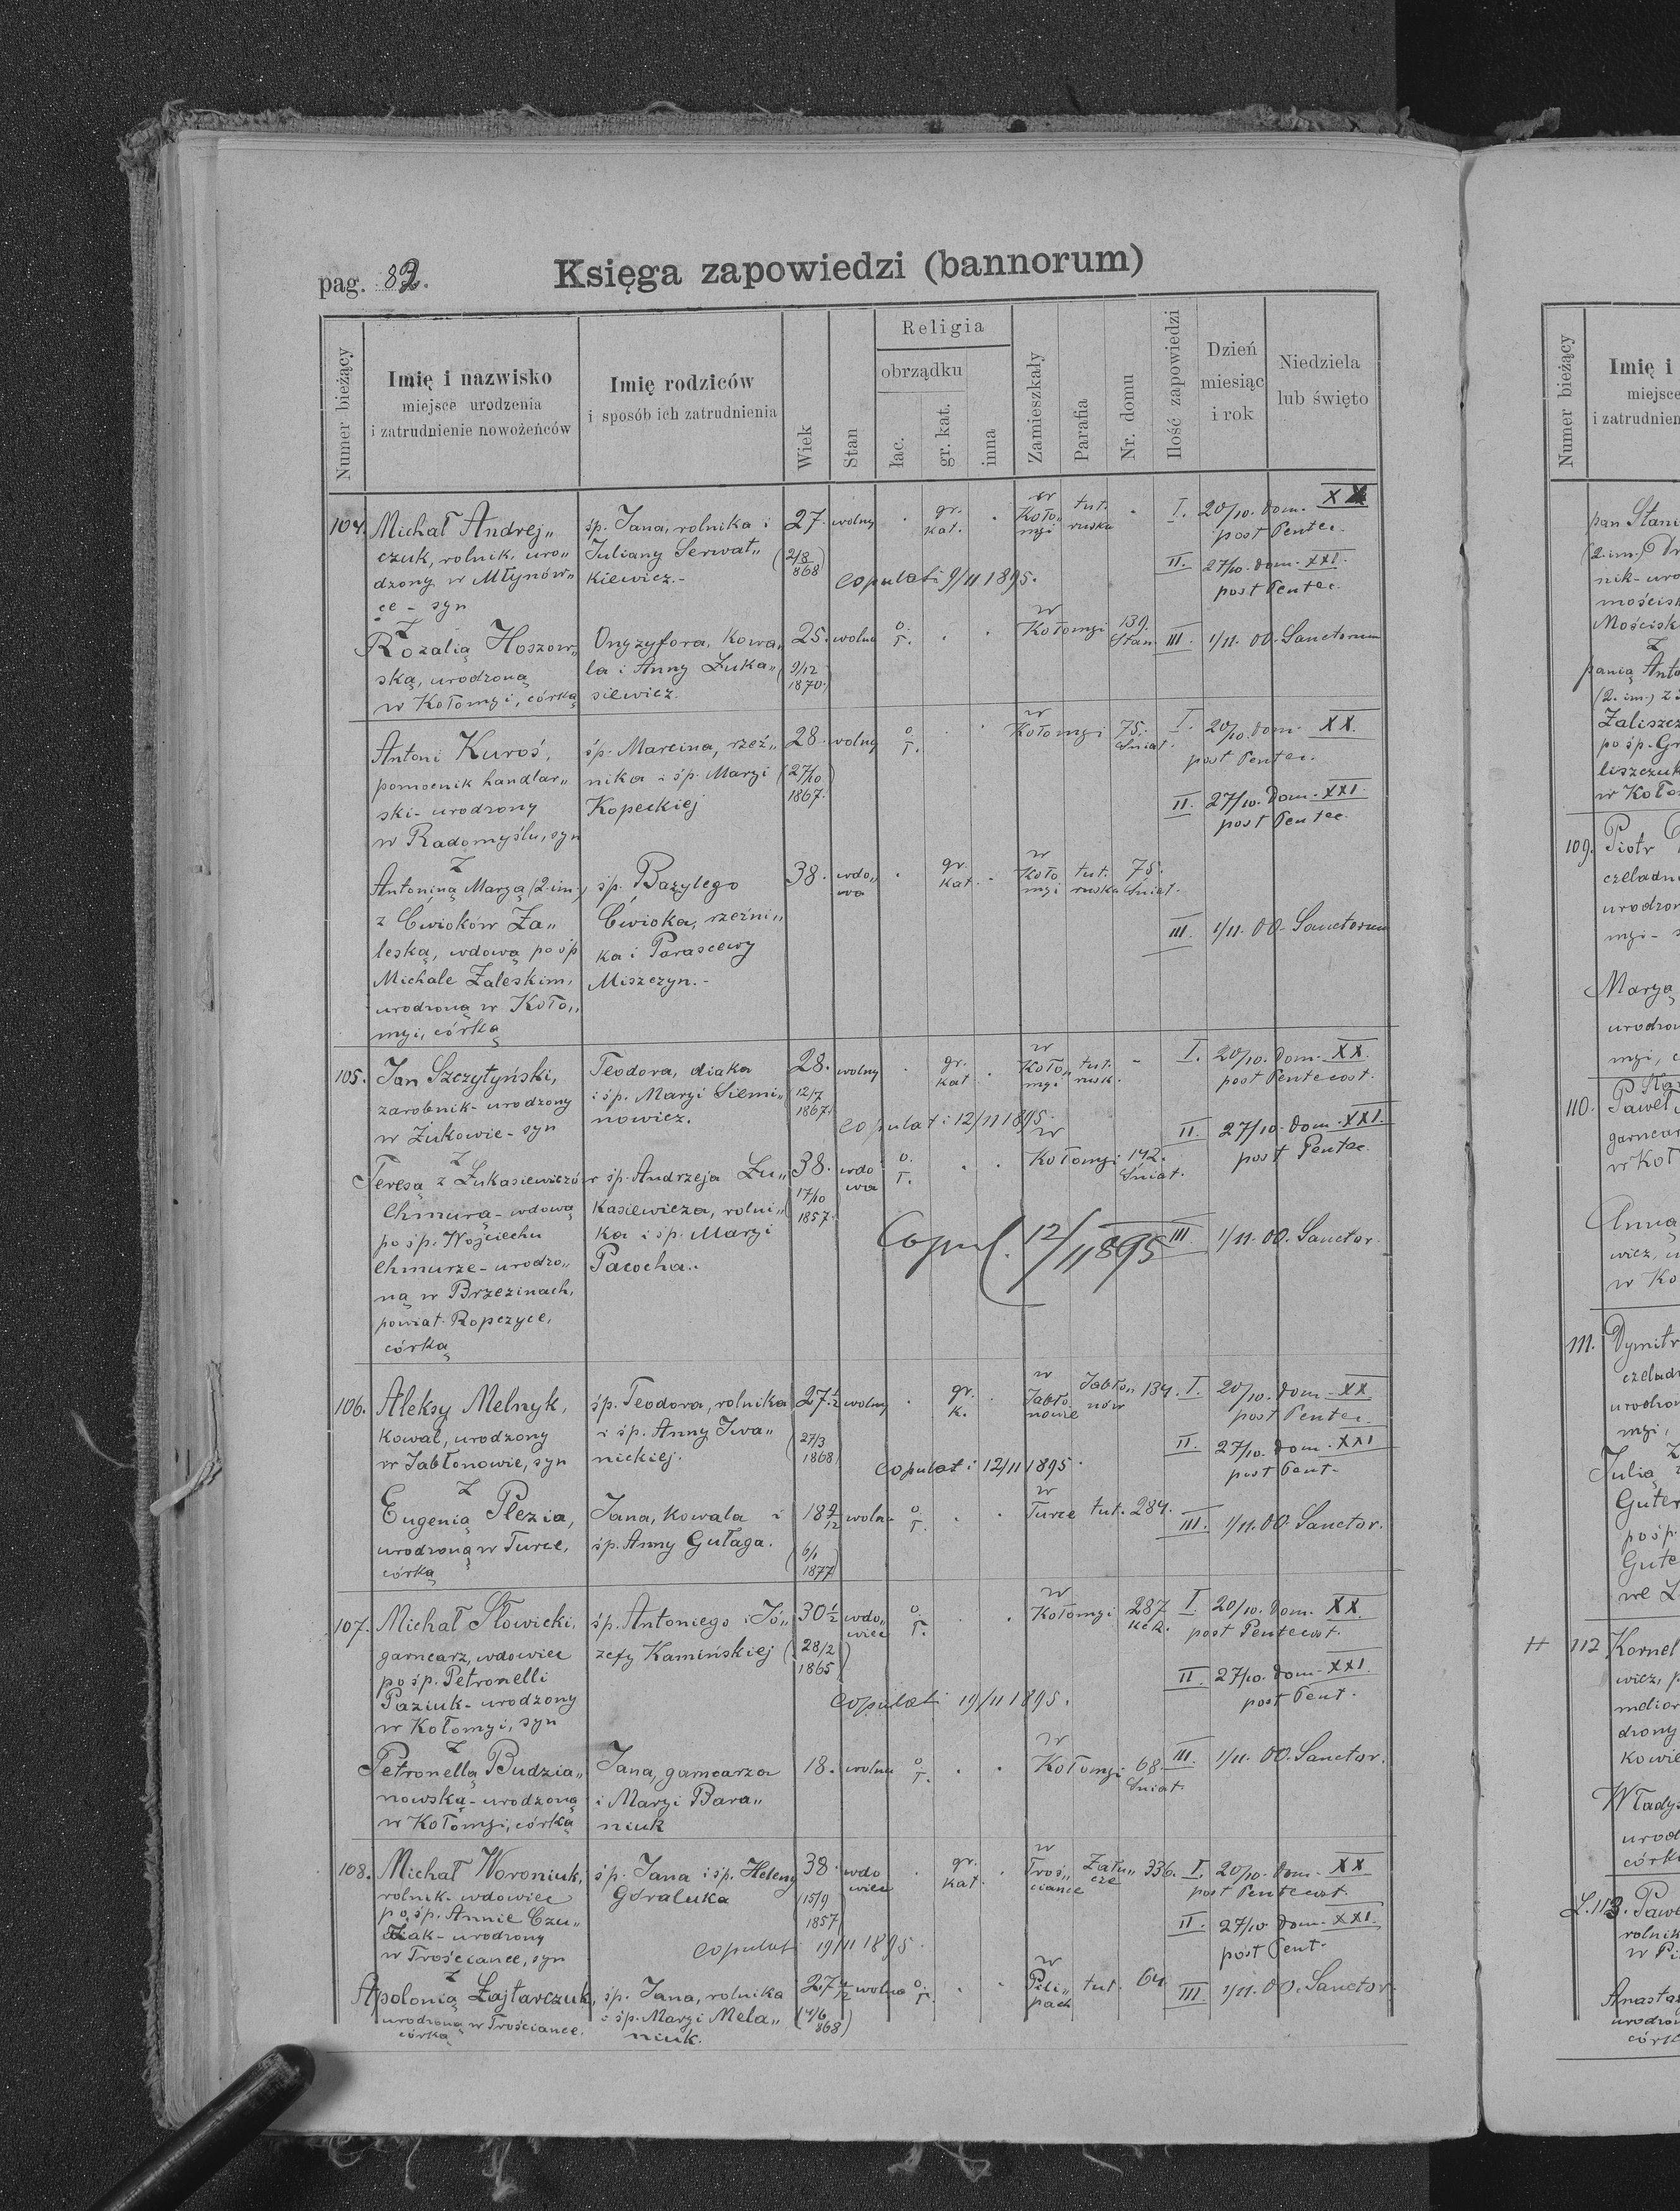 pag. 82.
Księga zapowiedzi (bannorum)
Numer bieżący
Imię i nazwisko
miejsce urodzenia
i zatrudnienie nowożeńców
Imię rodziców
i sposób ich zatrudnienia
Wiek
Stan
Religia
obrządku
łac.
gr. kat.
inna
Zamieszkały
Parafia
Nr. domu
Ilość zapowiedzi
Dzień
miesiąc
i rok
Niedziela
lub święto
104. Michał Andrej„
czuk, rolnik, uro„
dzony w Młynów„
ce - syn
śp. Jana, rolnika i
Juliany Serwat„
kiewicz.-
27. wolny . gr. kat. . w Koło„ myi tut. ruska -
(2/8 868)
I. 20/10. Dom. XX
post Pentec.
II. 27/10. Dom. XXI.
post Pentec.
copulati 9/11 1895.
Z
Rozalią Hoszow„
ską, urodzoną
w Kołomyi, córką
Onyzyfora, Kowa„
la i Anny Łuka„
siewicz.
25. wolna o. ł. . . w Kołomyi 139. Stan.
(9/12 1870.)
III. 1/11. OO. Sanctorum
Antoni Kuroś,
pomocnik handlar„
ski - urodzony
w Radomyślu, syn
śp. Marcina, rzeź„
nika i śp. Maryi
Kopeckiej
28. wolny o. ł. . . w Kołomyi 75. Śniat.
(27/10 1867.
I. 20/10. Dom. XX.
post Pentec.
II. 27/10. Dom. XXI.
post Pentec.
Z
Antoniną Maryą (2. im.)
z Ćwioków Za„
leską, wdową po śp
Michale Zaleskim,
urodzoną w Koło„
myi, córką
śp. Bazylego
Ćwioka, rzeźni„
ka i Parascewy
Miszczyn.-
38. wdo„ wa . gr. kat. . w Koło myi tut. ruska 75. Śniat.
III. 1/11. OO. Sanctorum
105. Jan Szczytyński,
zarobnik - urodzony
w Żukowie - syn
Teodora, diaka
i śp. Maryi Siemi„
nowicz.
28. wolny . gr. kat . w Koło„ myi tut. rusk. -
12/7 1867.
I. 20/10. Dom. XX.
post Pentecost.
copulati 12/11 1895.
II. 27/10. Dom. XXI.
post Pentec.
Z
Teresą z Łukasiewiczów
Chmurą - wdową
po śp. Wojciechu
Chmurze - urodzo„
ną w Brzezinach,
powiat Ropczyce,
córką
śp. Andrzeja Łu„
kasiewicza, rolni„
ka i śp. Maryi
Pacocha..
38. wdo wa o. ł. . . w Kołomyi 142. Śniat.
17/10 1857.
Copul. 12/11 895
III 1/11. OO. Sanctor.
106. Aleksy Melnyk,
kowal, urodzony
w Jabłonowie, syn
śp. Teodora, rolnika
i śp. Anny Iwa„
nickiej.
27 1/2 wolny . gr. k. . w Jabło„ nowie Jabło„ nów 134.
27/3 1868
I. 20/10. Dom. XX.
post Pentec.
II. 27/10. Dom. XXI
post Pent-
copulati 12/11 1895.
Z
Eugenią Plezia,
urodzoną w Turce,
córką
Jana, kowala i
śp. Anny Gułaga.
wolna o. ł. . . w Turce tut. 284.
(6/1 1877)
III. 1/11. OO. Sanctor.
107. Michał Słowicki,
garncarz, wdowiec
po śp. Petronelli
Paziuk - urodzony
w Kołomyi, syn
śp. Antoniego i Jó„
zefy Kamińskiej
30 1/2 wdo„ wiec o. ł. . . w Kołomyi 287
(28/2 1865)
I. 20/10. Dom. XX.
post Pentecost.
II. 27/10. Dom. XXI.
post Pent.
copulati 19/11 1895.
Z
Petronellą Budzia„
nowską - urodzoną
w Kołomyi, córką
Jana, garncarza
i Maryi Bara„
niuk
18. wolna o. ł. . . w Kołomyi 68. Śniat.
III. 1/11. OO. Sanctor.
108. Michał Woroniuk,
rolnik - wdowiec
po śp. Annie Czu„
żak - urodzony
w Trościance, syn
śp. Jana i śp. Heleny
Góraluka
38. wdo wiec . gr. kat. . w Troś„ ciance Zału„ cze 336.
(15/9 1857
I. 20/10. Dom. XX
post Pentecost.
II. 27/10 Dom. XXI.
post Pent-
copulati 19/11 1895.
Z
Apolonią Łajtarczuk,
urodzoną w Trościance.
córką
śp. Jana, rolnika
i śp. Maryi Mela„
niuk.
wolna o. ł. . . w Pili„ pach tut. 64
III 1/11. OO. Sanctor.
Numer bieżący
Imię i
miejsce
i zatrudnien
pan Stani
(2. im.)
nik - uro
mościsk
Mościsk
Z
panią Anto
(2. im.) z
Zaliszcz
po śp. Gr
liszczuk
w Koło
109. Piotr
czeladni
urodzon
myi - s
Maryą
urodzon
myi, c
110. Paweł
garncar
w Koł
Anną
wicz, u
w Ko
111. Dymitr
czeladn
urodzon
myi,
Z
Julią
Guter
po śp.
Gute
we L
112 Kornel
wicz, p
melior
drony
kowie
Włady
urod
córk
113. Pawe
rolnik
w Pi
Anasta
urodzon
córk